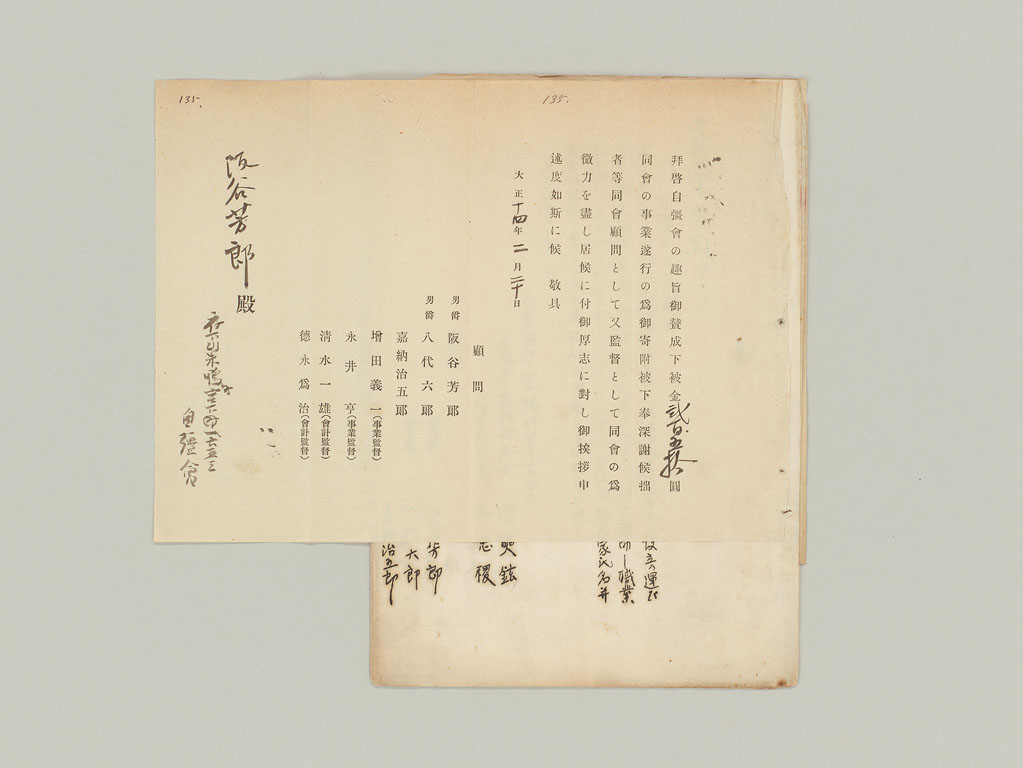 135.
135.
拜啓自彊會の趣旨御賛成下被金貳百五拾圓
同會の事業遂行の爲御寄附被下奉深謝候拙
者等同會顧問として又監督として同會の爲
微力を盡し居候に付御厚志に對し御挨拶申
述度如斯に候 敬具
大正十四年二月二十日
顧問
男爵 阪谷芳郎
男爵 八代六郎
嘉納治五郎
增田義一(事業監督)
永井亨(事業監督)
淸水一雄(會計監督)
德永爲治(會計監督)
阪谷芳郎殿
自彊會
職業
家氏名并
芳郎
六郎
治五郎